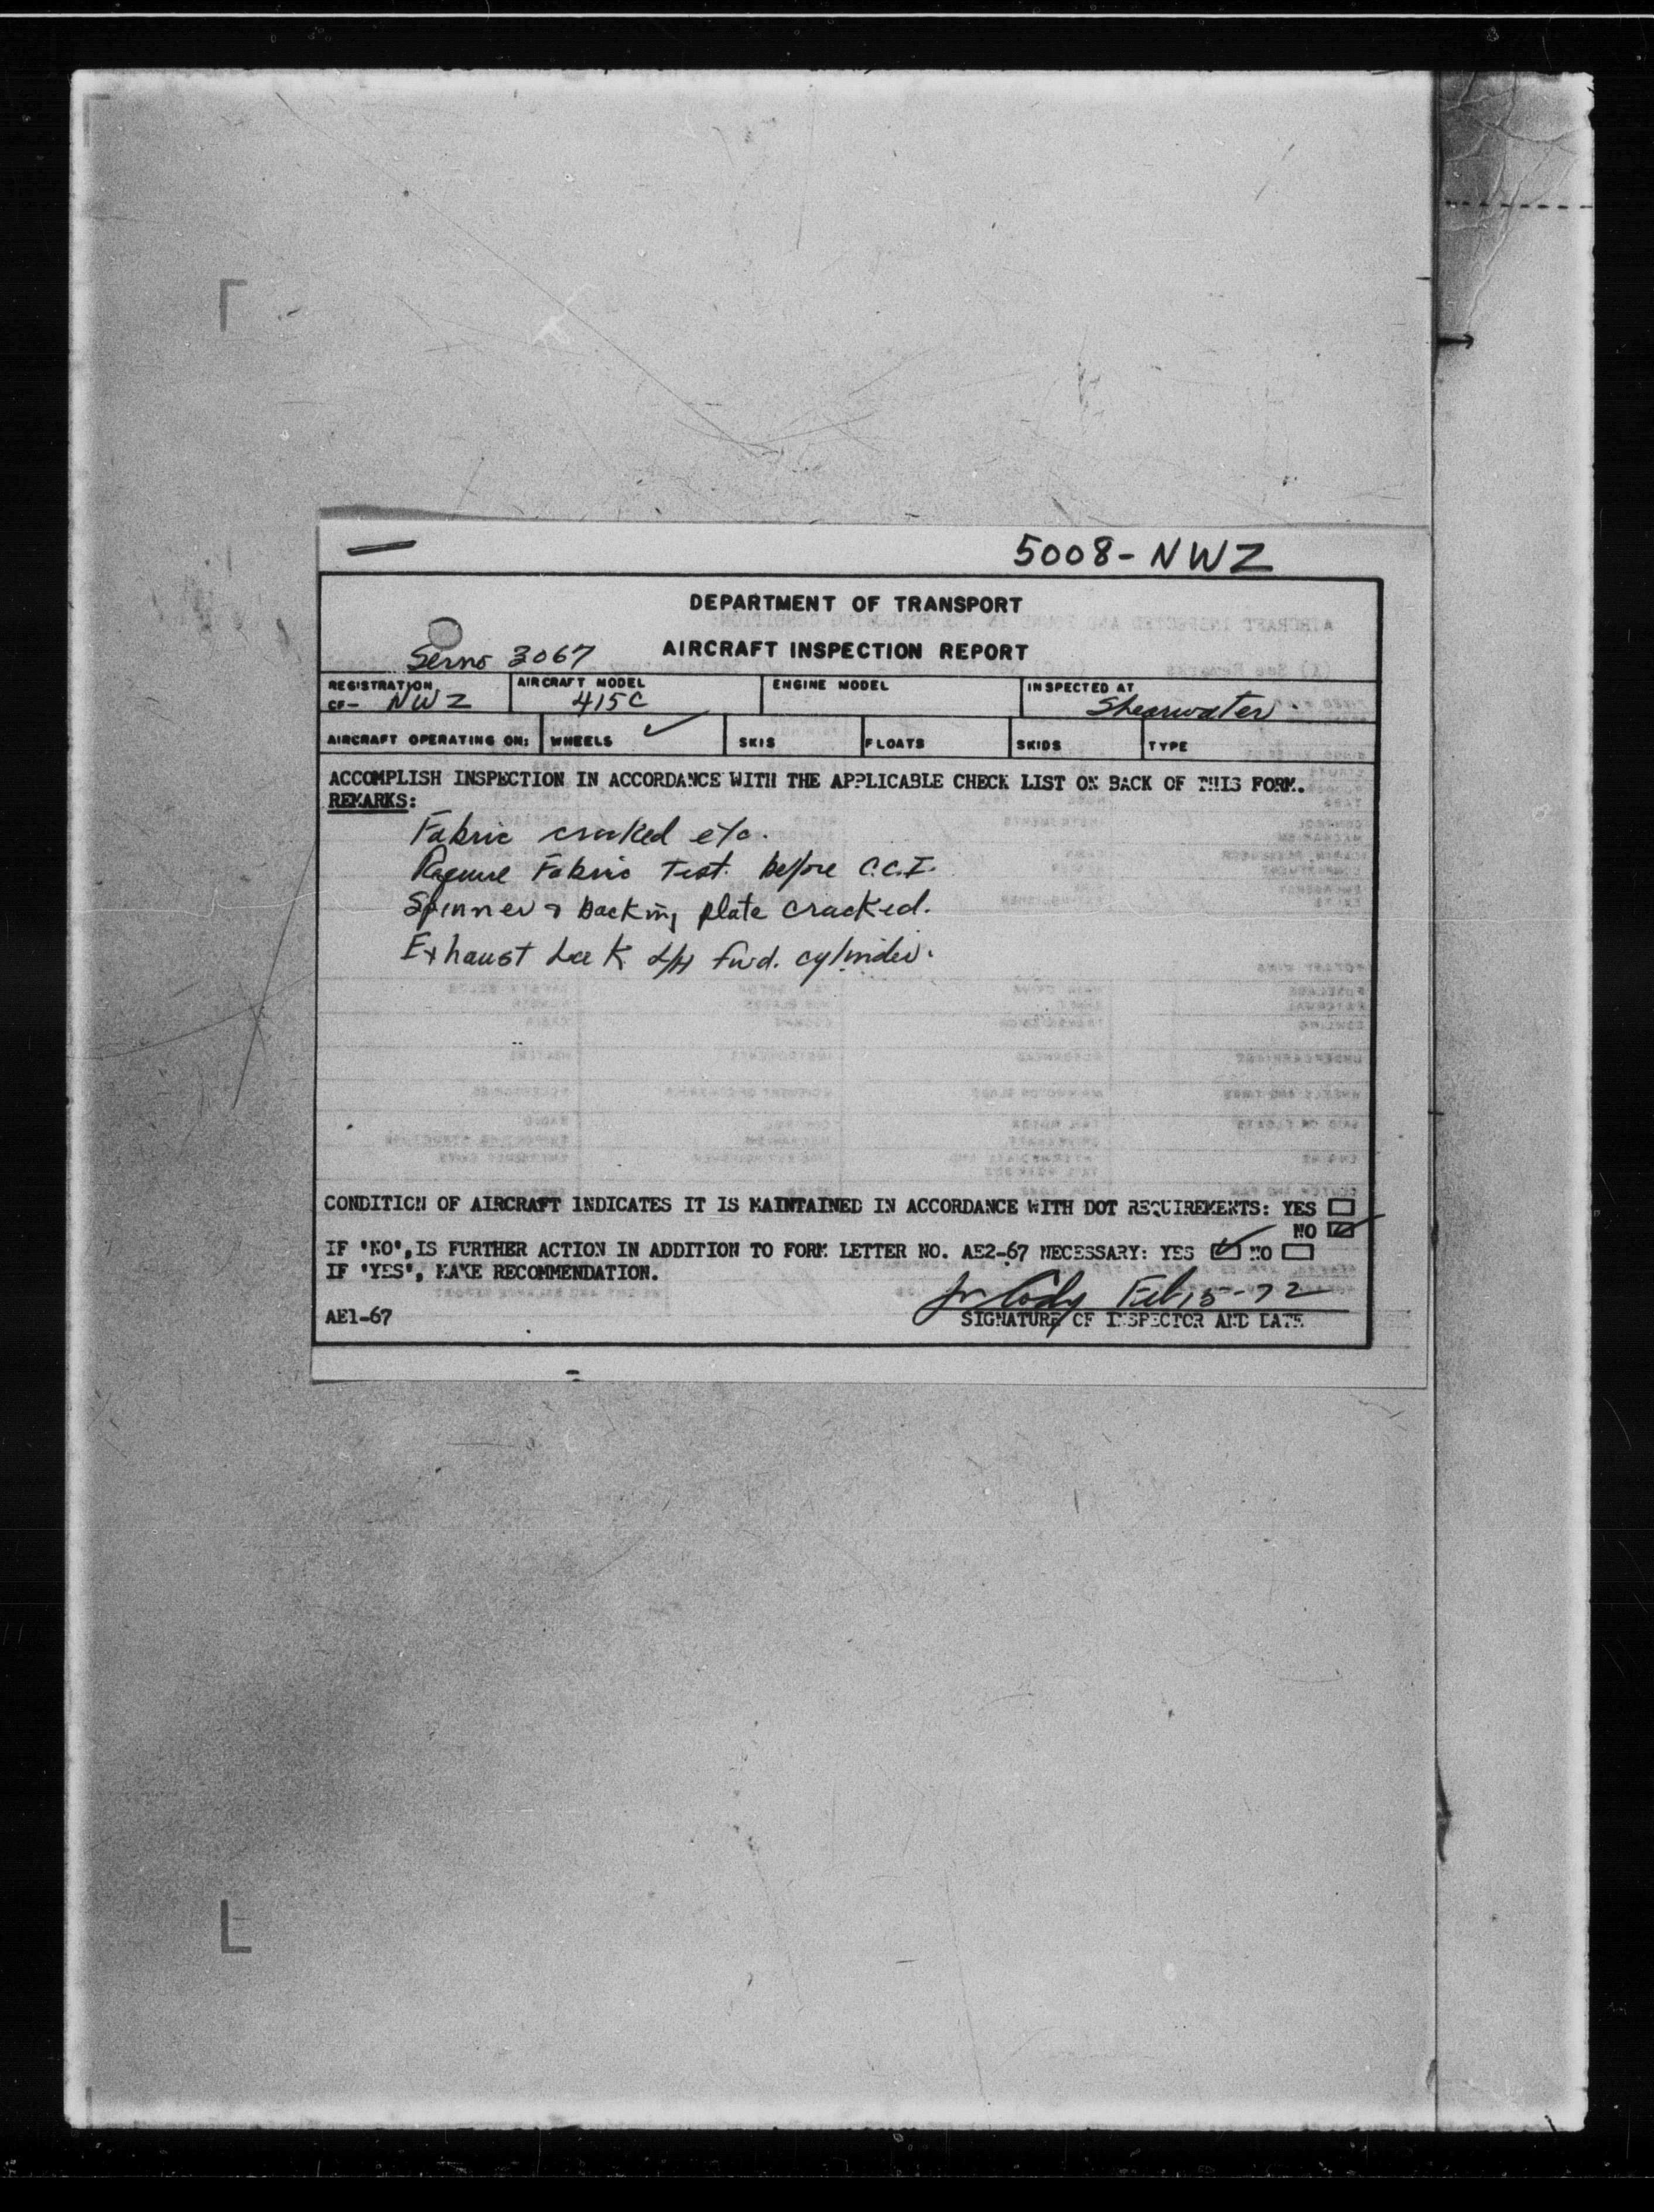 5008-NWZ
DEPARTMENT OF TRANSPORT
Serno 3067
AIRCRAFT INSPECTION REPORT
REGISTRATION AIRCRAFT MODEL ENGINE MODEL INSPECTED AT
CF- NWZ 415C Shearwater
AIRCRAFT OPERATING ON: WHEELS SKIS FLOATS SKIDS TYPE
ACCOMPLISH INSPECTION IN ACCORDANCE WITH THE APPLICABLE CHECK LIST ON BACK OF THIS FORM.
REMARKS:
Fabric cracked etc.
Require Fabric Test before C.C.I.
Spinner & backing plate cracked.
Exhaust Leak L/H fwd. cylinder.
CONDITION OF AIRCRAFT INDICATES IT IS MAINTAINED IN ACCORDANCE WITH DOT REQUIREMENTS: YES
NO
IF "NO", IS FURTHER ACTION IN ADDITION TO FORM LETTER NO. AE2-67 NECESSARY: YES NO
IF "YES", MAKE RECOMMENDATION.
Cody Feb 15-72
AE1-67 SIGNATURE OF INSPECTOR AND DATE